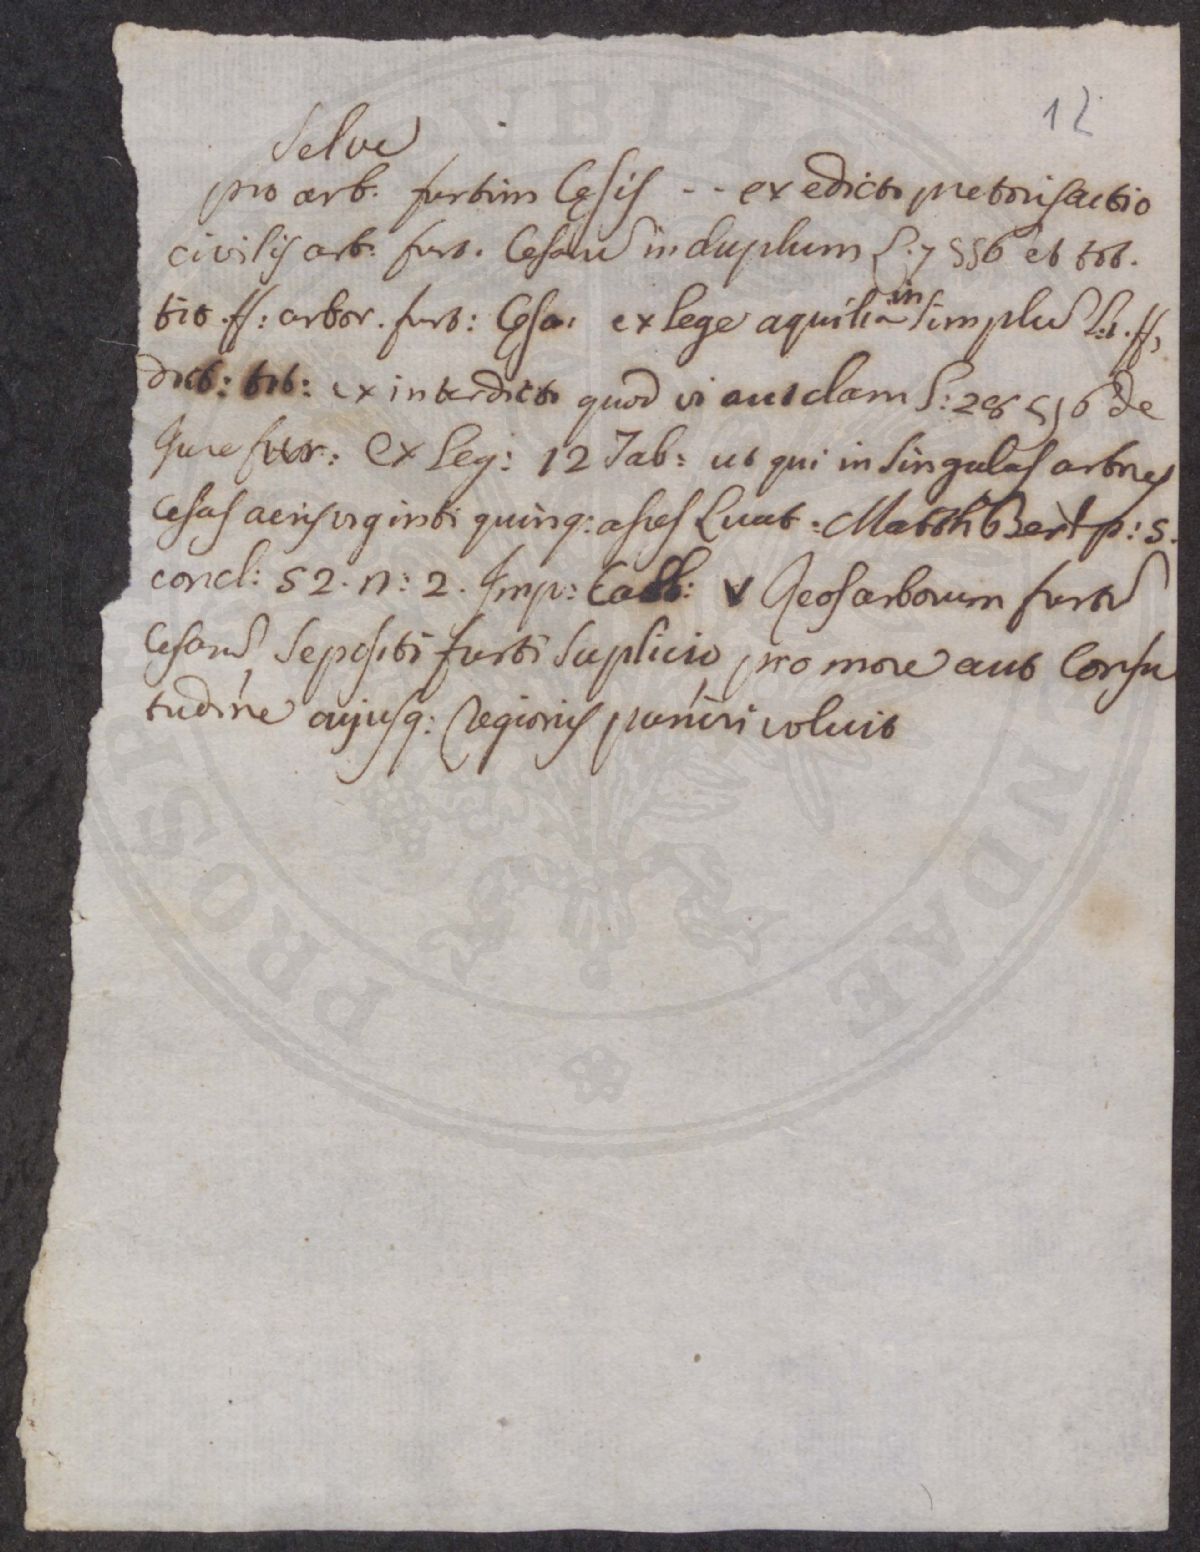 12
Selve
pro arb. furtim Cęsis -- ex edicto pretoris actio
civilis arb: furt. Cesarũ in duplum L. 7 §§ 6 et tot.
tit. ff: arbor. furt: Cęsa. ex lege aquilia in simplũ L: 1. ff,
dict: tit: ex interdicto quod vi aut clam L: 28 §§ 6 de
Jure fur: Ex leg: 12 Tab: ut qui in singulas arbores
cesas aeris viginti quinq: asses Luat: Matth Bert p: 5.
concl: 52. n: 2. Imp: Caro: V Reos arborum furtĩ
Cesarũ, sepositi furti suplicio, pro more aut Consu
tudine cujusq: regionis puniri voluit
PVBLICAE
PROSPE
NDAE